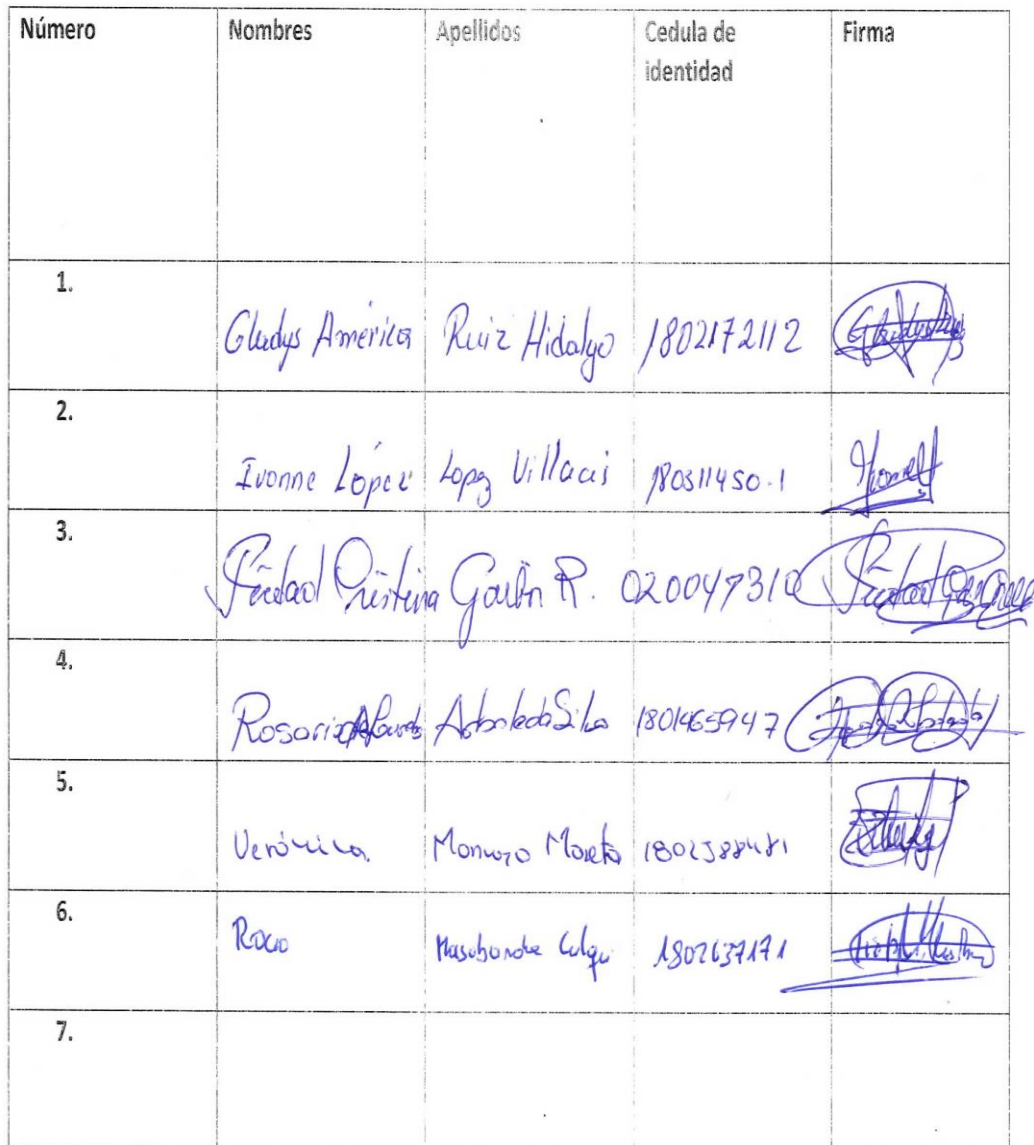 Número Nombres Apellidos Cedula de identidad Firma
1. Gladys América Ruiz Hidalgo 1802172112
2. Ivonne López Lopez Villacis 180311450-1
3. Piedad Cristina R. 020047310
4. Rosario Arboleda Silva 1801465947
5. Verónica 1802388481
6. Rocio Masabanda Culqui 1802637171
7.